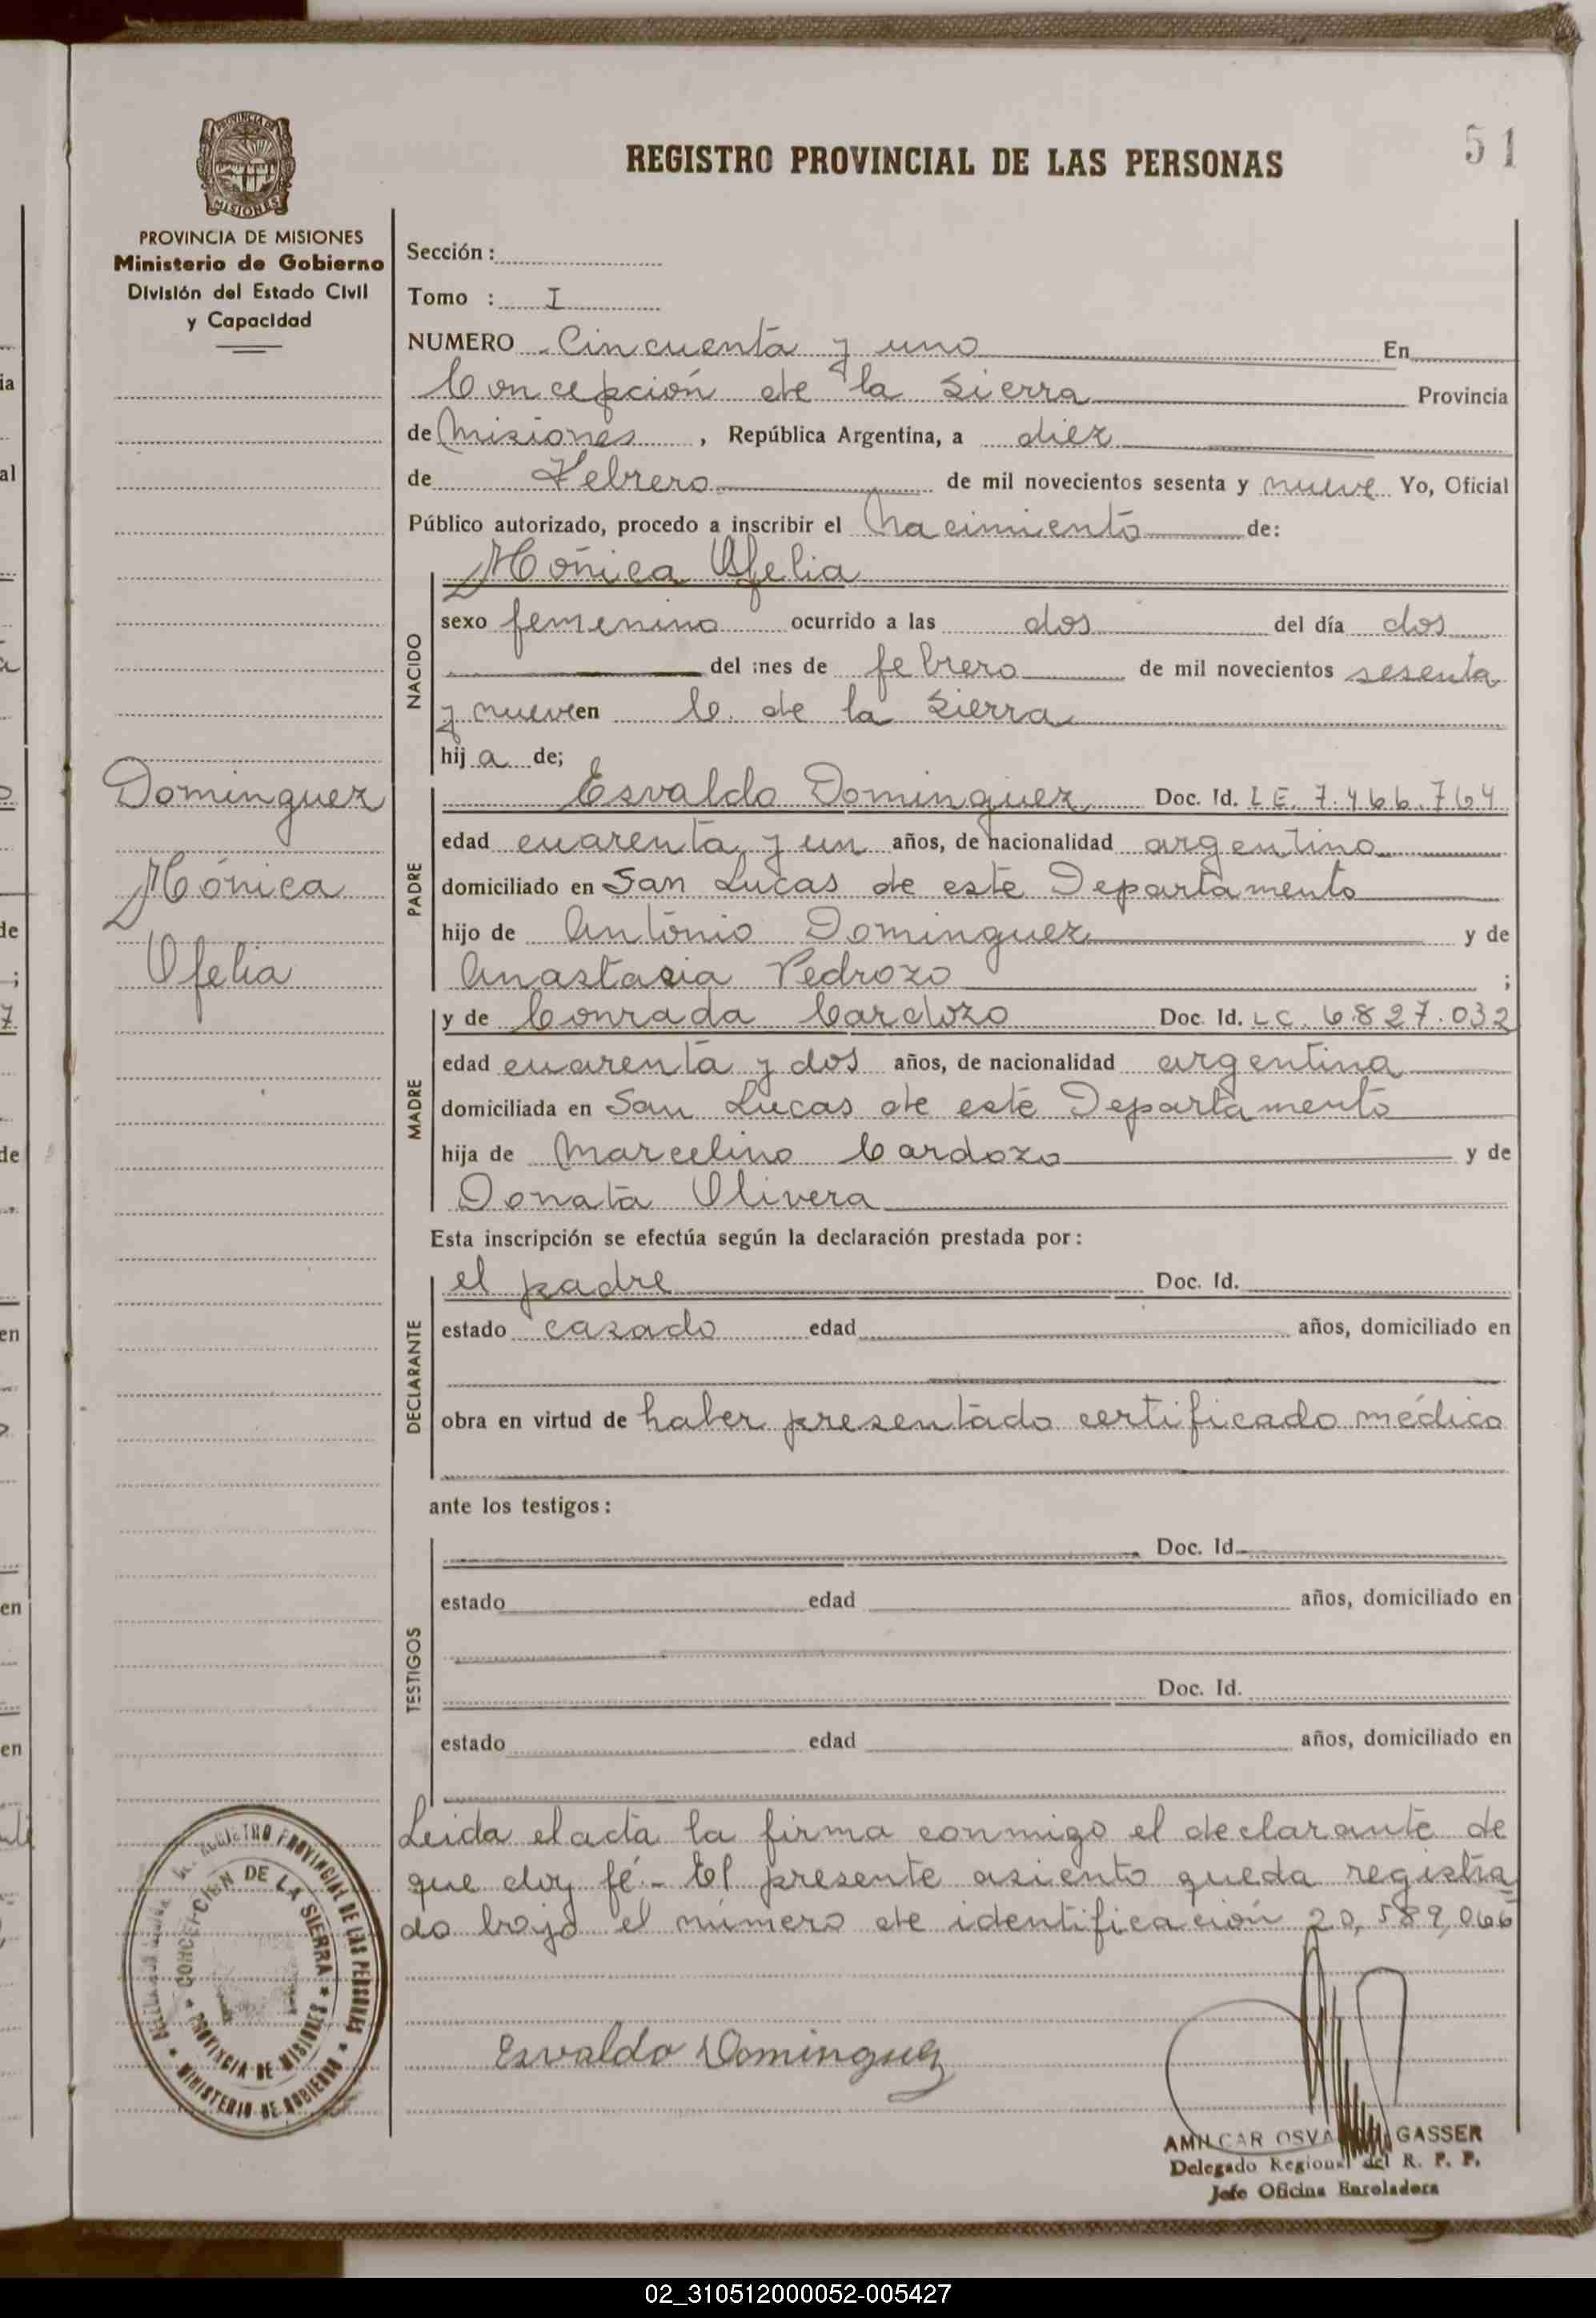 51
REGISTRO PROVINCIAL DE LAS PERSONAS
PROVINCIA DE MISIONES
Ministerio de Gobierno
División del Estado Civil
y Capacidad
Sección:
Tomo : I
NUMERO Cincuenta y uno En
Concepción de la Sierra Provincia
de Misiones, República Argentina, a diez
de Febrero de mil novecientos sesenta y nueve Yo, Oficial
Público autorizado, procedo a inscribir el Nacimiento de:
Mónica Ofelia
NACIDO
sexo femenino ocurrido a las dos del día dos
del mes de febrero de mil novecientos sesenta
y nueve en C. de la Sierra
hija de;
Dominguez
Mónica
Ofelia
PADRE
Esvaldo Dominguez Doc. Id. L E. 7.466.764
edad cuarenta y un años, de nacionalidad argentino
domiciliado en San Lucas de este Departamento
hijo de Antonio Dominguez y de
Anastasia Pedrozo ;
MADRE
y de Conrada Cardozo Doc. Id. L C. 6.827.032
edad cuarenta y dos años, de nacionalidad argentina
domiciliada en San Lucas de este Departamento
hija de Marcelino Cardozo y de
Donata Olivera
Esta inscripción se efectúa según la declaración prestada por:
DECLARANTE
el padre Doc. Id.
estado casado edad años, domiciliado en
obra en virtud de haber presentado certificado médico
ante los testigos:
TESTIGOS
Doc. Id.
estado edad años, domiciliado en
Doc. Id.
estado edad años, domiciliado en
Leida el acta la firma conmigo el declarante de
que doy fé.- El presente asiento queda registra
do bajo el número de identificación 20,589,066
REGISTRO PROVINCIAL DE LAS PERSONAS
CONCEPCION DE LA SIERRA
PROVINCIA DE MISIONES
MINISTERIO DE GOBIERNO
Esvaldo Dominguez
AMILCAR GASSER
Delegado Regional del R. P. P.
Jefe Oficina Enroladora
02_310512000052-005427